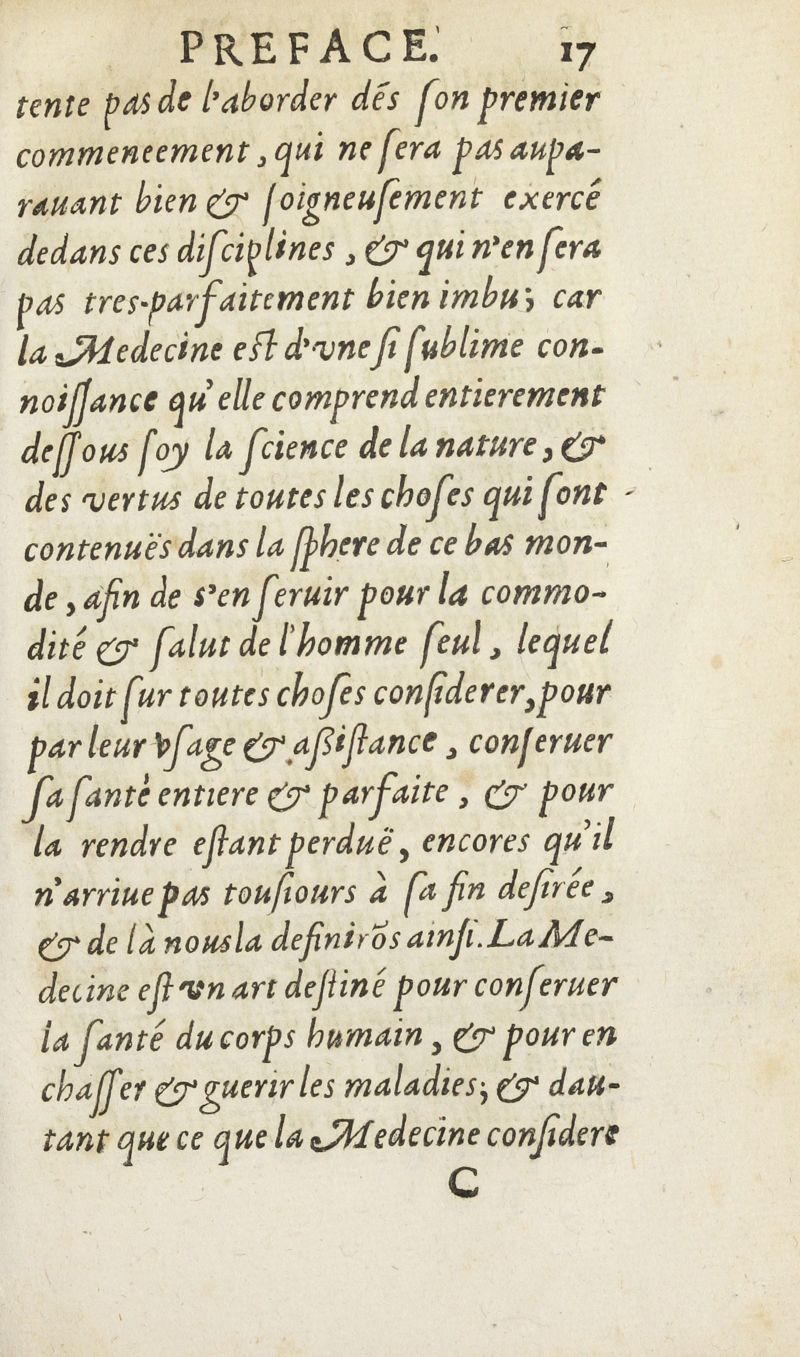 PREFACE. 17
tente pas de l'aborder dés ſon premier
commeneement, qui ne ſera pas aupa-
rauant bien & ſoigneuſement exercé
dedans ces diſciplines, & qui n'en ſera
pas tres-parfaitement bien imbu; car
la Medecine eſt d'vne ſi ſublime con-
noiſſance qu'elle comprend entierement
deſſous ſoy la ſcience de la nature, &
des vertus de toutes les choſes qui ſont
contenuës dans la ſphere de ce bas mon-
de, afin de s'en ſeruir pour la commo-
dité & ſalut de l'homme ſeul, lequel
il doit ſur toutes choſes conſiderer, pour
par leur vſage & aßiſtance, conſeruer
ſa ſantè entiere & parfaite, & pour
la rendre eſtant perduë, encores qu'il
n'arriue pas touſiours à ſa fin deſirée,
& de là nous la definirõs ainſi. La Me-
decine eſt vn art deſtiné pour conſeruer
la ſanté du corps humain, & pour en
chaſſer & guerir les maladies; & dau-
tant que ce que la Medecine conſidere
C